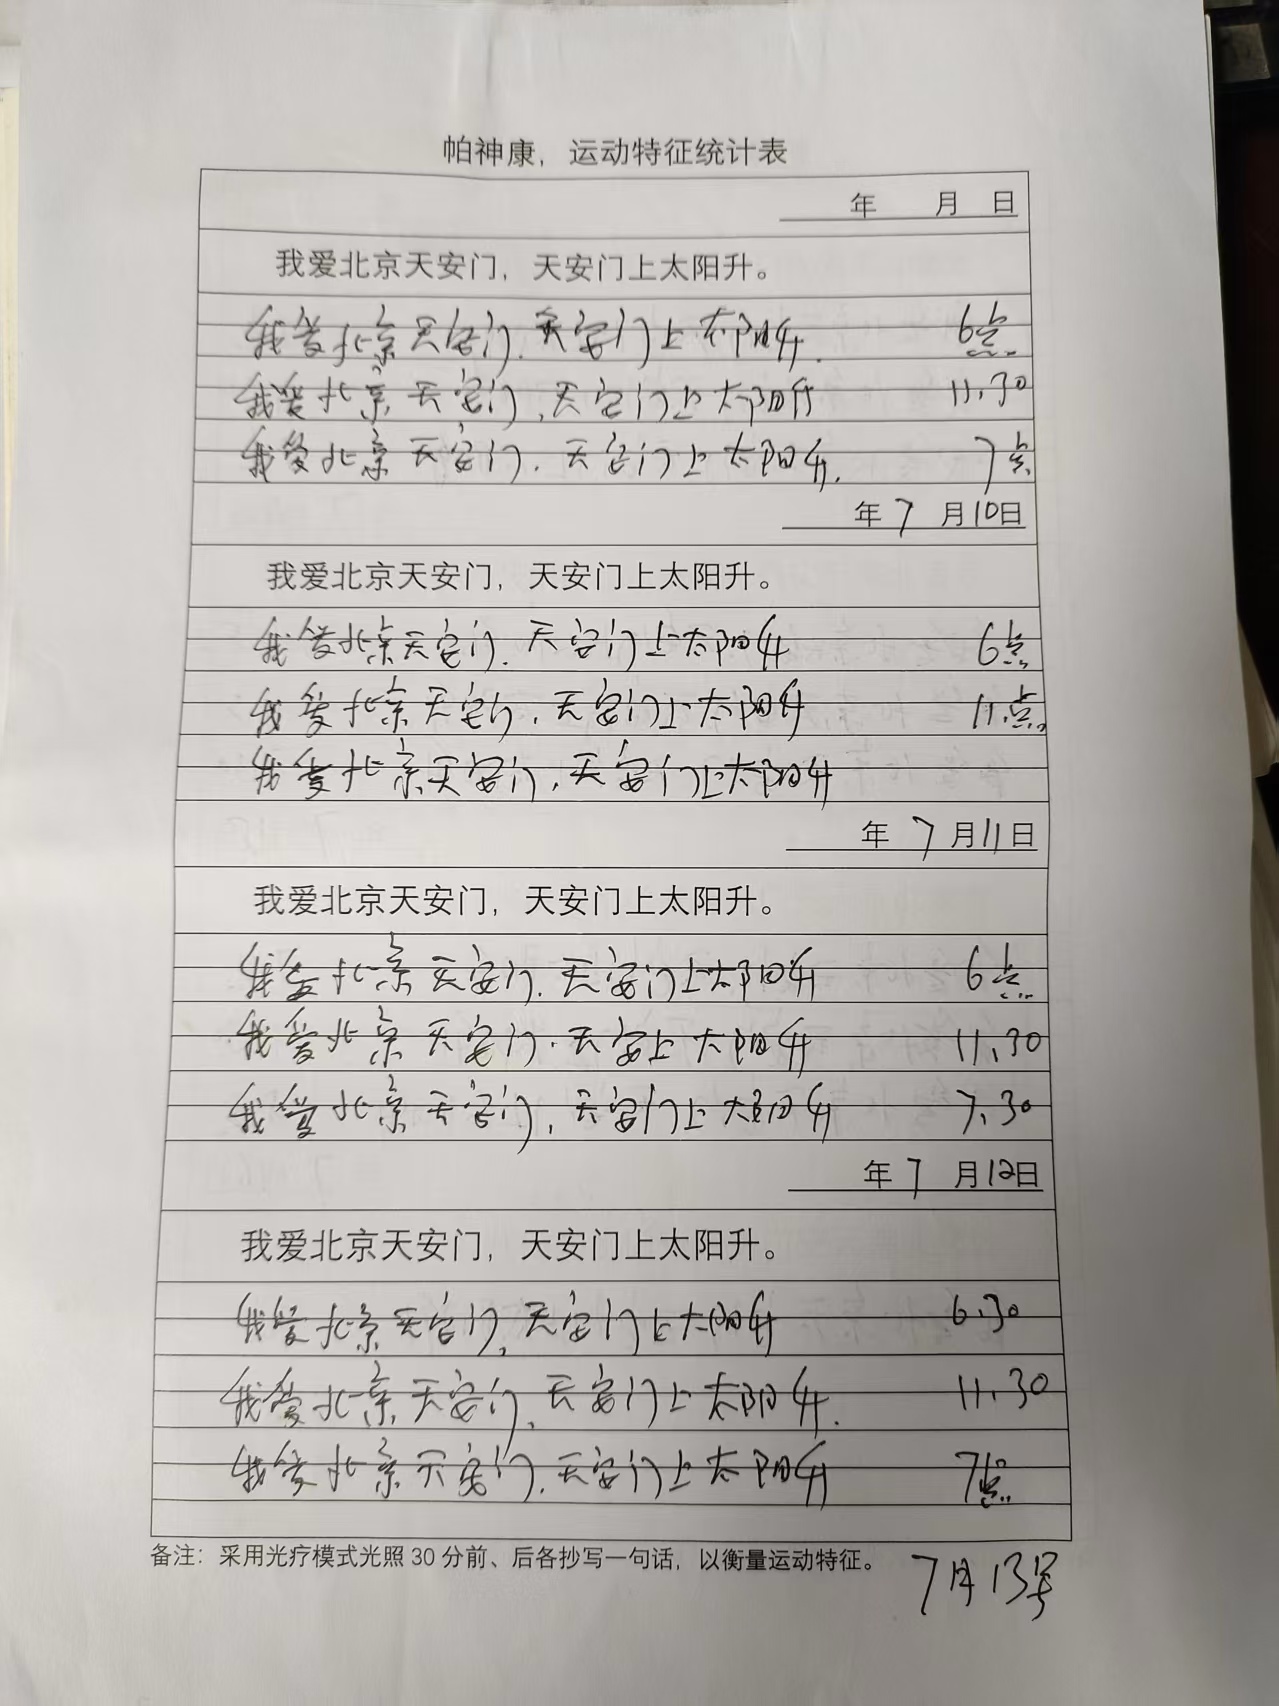 帕神康，运动特征统计表
年 月 日
我爱北京天安门，天安门上太阳升。
我爱北京天安门.天安门上太阳升. 6点
我爱北京天安门,天安门上太阳升 11.30
我爱北京天安门.天安门上太阳升. 7点
年 7 月10日
我爱北京天安门，天安门上太阳升。
我爱北京天安门.天安门上太阳升 6点
我爱北京天安门.天安门上太阳升 11.点
我爱北京天安门.天安门上太阳升
年 7 月11日
我爱北京天安门，天安门上太阳升。
我爱北京天安门.天安门上太阳升 6点
我爱北京天安门.天安上太阳升 11.30
我爱北京天安门,天安门上太阳升 7.30
年 7 月12日
我爱北京天安门，天安门上太阳升。
我爱北京天安门,天安门上太阳升 6.30
我爱北京天安门,天安门上太阳升. 11.30
我爱北京天安门.天安门上太阳升 7点
备注：采用光疗模式光照 30 分前、后各抄写一句话，以衡量运动特征。
7月13号